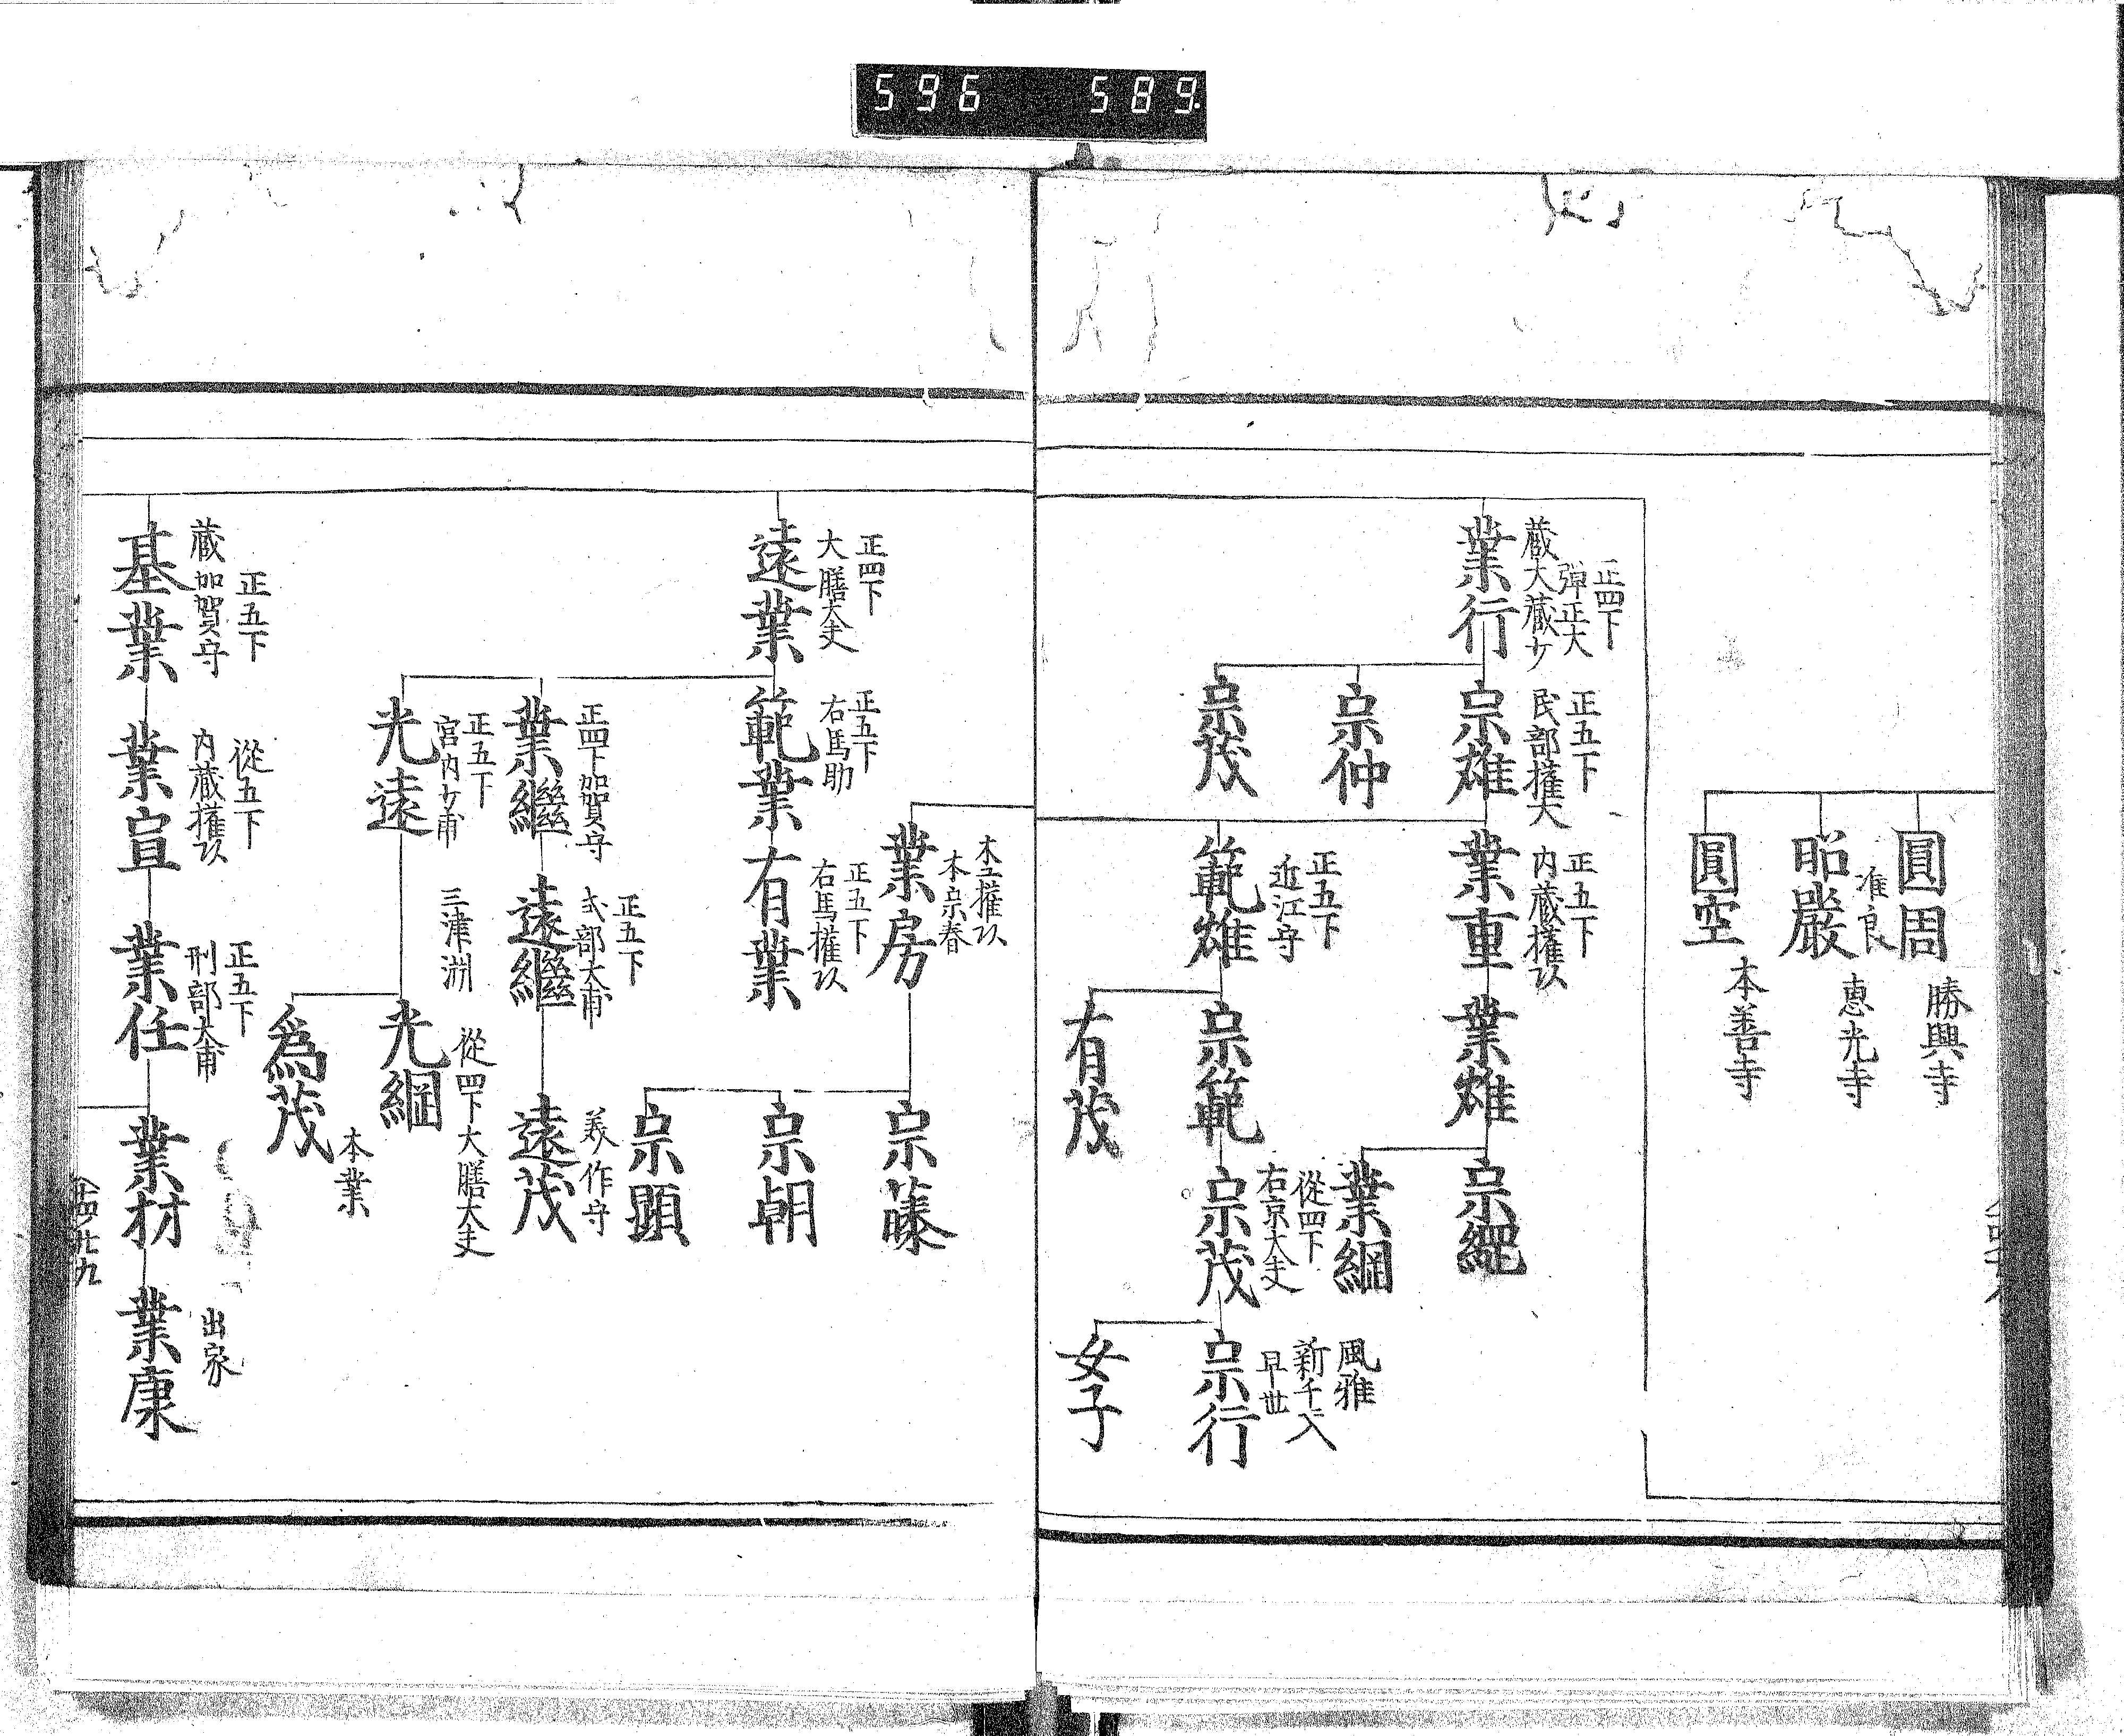 596 589
圓周
勝興寺
准良
昭嚴
惠光寺
圓空
本善寺
正四下
彈正大
蔵大蔵少
業行
正五下
民部權大
宗雄
宗仲
宗茂
正五下
内蔵權以
業重
業雄
宗繩
業綱
正五下
近江守
範雄
宗範
從四下
右京大夫
宗茂
風雅
新千入
早世
宗行
女子
有茂
木工權以
本宗春
業房
宗藤
宗朝
宗顕
正四下
大膳大夫
遠業
正五下
右馬助
範業
正五下
右馬權以
有業
正四下加賀守
業繼
正五下
式部大甫
遠繼
美作守
遠茂
正五下
宮内少甫
光遠
三津渕
從四下大膳大夫
光綱
本業
爲茂
正五下
蔵加賀守
基業
從五下
内蔵權以
業宣
正五下
刑部大甫
業任
業材
出家
業康